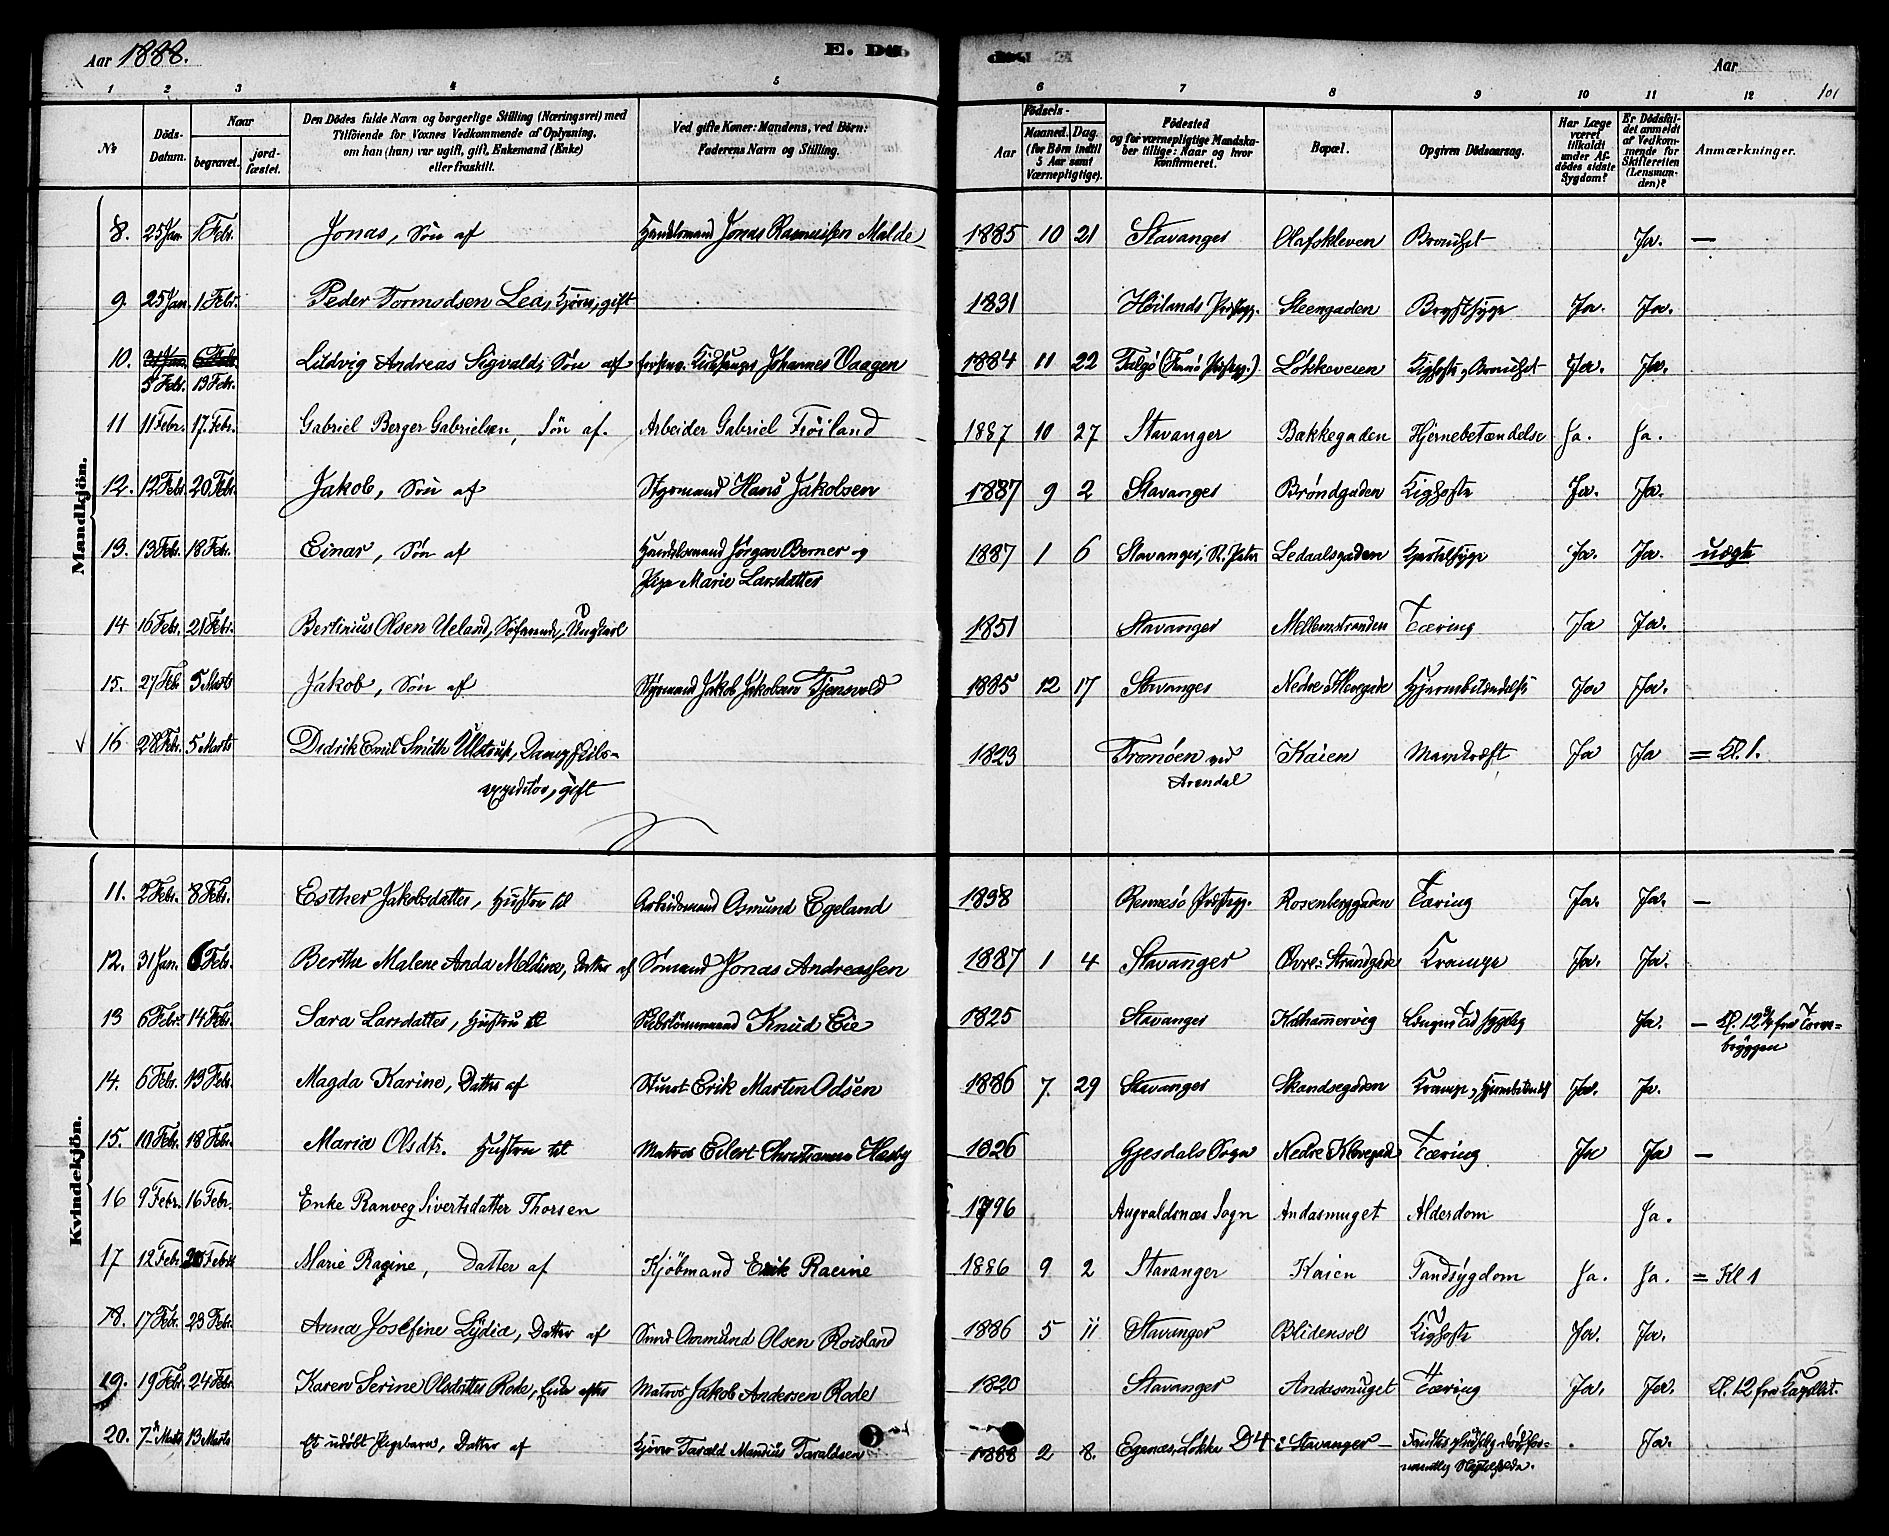 Aar 1888. E. Dö
Aar
101
1 2 3 4 5 6 7 8 9 10 11 12
No
Döds-Datum.
Naar
begravet.
jord-fæstet.
Den Dödes fulde Navn og borgerlige Stilling (Næringsvei) med
Tilföiende for Voxnes Vedkommende af Oplysning,
om han (hun) var ugift, gift, Enkemand (Enke)
eller fraskilt.
Ved gifte Koner: Mandens, ved Börn:
Faderens Navn og Stilling.
Födsels-
Aar
Maaned. Dag.
(for Börn indtil
5 Aar samt
Værnepligtige).
Födested
og for værnepligtige Mandska-
ber tillige: Naar og hvor
konfirmeret.
Bopæl.
Opgiven Dödsaarsag.
Har Læge
været
tilkaldt
under Af-
dödes sidste
Sygdom?
Er Dödsfal-
det anmeldt
af Vedkom-
mende for
Skifteretten
(Lensman-
den)?
Anmærkninger.
Mandkjön.
8. 25 Jan. 1 Febr. Jonas, Søn af Handelsmand Jonas Rasmussen Malde 1885 10 21 Stavanger Olafskleven Bronchit Ja. —
9. 25 Jan. 1 Febr. Peder Tormodsen Lea, gift 1831 Høilands Prstgj. Steengaden Brystsyge Ja. Ja.
10. 31 Jan. 6 Febr. Ludvig Andreas Sigvald, Søn af Johannes Vaagen 1884 11 22 Talgø (Finnø Prstgj.) Løkkeveien Kighoste, Bronchit Ja. Ja.
5 Febr. 13 Febr.
11 11 Febr. 17. Febr. Gabriel Berger Gabrielsen, Søn af. Arbeider Gabriel Frøiland 1887 10 27 Stavanger Bakkegaden Hjernebetændelse Ja. Ja.
12. 12 Febr. 20 Febr. Jakob, Søn af Styrmand Hans Jakobsen 1887 9 2 Stavanger Brøndgaden Kighoste Ja. Ja.
13. 13 Febr. 18 Febr. Einar, Søn af Handelsmand Jørgen Berner og 1887 1 6 Stavanger, St. Petri Ledaalsgaden Ja. Ja. uægte
Pige Marie Larsdatter
14 16 Febr. 21 Febr. Bertinius Olsen Ueland, Sømand, Ungkarl 1851 Stavanger Mellemstranden Tæring Ja Ja.
15. 27 Feb. 5 Marts Jakob, Søn af Styrmand Jakob Jakobsen Tjensvold 1885 12 17 Stavanger Nedre Klevegade Hjernebetændelse Ja Ja.
16 28 Febr. 5 Marts Didrik Emil Smith Ulstrup, Dampskibs- 1823 Tromøen ved Kaien Mavekræft Ja Ja = Kl. 1.
expeditør, gift Arendal
Kvindekjön.
11. 2 Febr. 8 Febr. Esther Jakobsdatter, Hustru til Arbeidsmand Osmund Egeland 1838 Rennesø Prstgj. Rosenberggaden Tæring Ja. Ja. —
12. 31 Jan. 6 Febr. Berthe Malene Anda Meldine, Datter af Sømand Jonas Andreassen 1887 1 4 Stavanger Øvre Strandgade Krampe Ja. Ja.
13 6 Febr. 14 Febr. Sara Larsdatter, Hustru til Knud Eie 1825 Stavanger Kalhammervig Længere Tid sygelig Ja. — Kl. 12 fra Torve-
bryggen
14. 6 Febr. 13 Febr. Magda Karine, Datter af Stuert Erik Martin Odsen 1886 7. 29 Stavanger Skandsegaden Krampe, Hjernebetændelse Ja. Ja.
15. 10 Febr. 18 Febr. Maria Olsdtr. Hustru til Matros Eilert Christiansen Hæsby 1826 Gjesdals Sogn Nedre Klevegade Tæring Ja Ja —
16 9 Febr. 16 Febr. Enke Ranveg Sivertsdatter Thorsen 1796 Augvaldsnæs Sogn Andasmuget Alderdom Ja.
17 12 Febr. 20 Febr. Marie Ragine, Datter af Kjöbmand Erik Racine 1886 9 2 Stavanger Kaien Tandsygdom Ja. Ja. = Kl 1
18. 17 Febr. 23 Febr. Anna Josefine Lydia, Datter af Smed Osmund Olsen Roisland 1886 5 11 Stavanger Blidensol Kighoste Ja. Ja.
19. 19 Febr. 24 Febr. Karen Serine Olsdatter Rode, Enke efter Matros Jakob Andersen Rode 1820 Stavanger Andasmuget Tæring Ja. Ja. Kl. 12 fra Kapellet.
20. 7 Marts 13 Marts Et udøbt Pigebarn, Datter af Kjører Tarald Mandius Taraldsen 1888 2 8. Egenæs, Løkke D4 i Stavanger —  Ja.